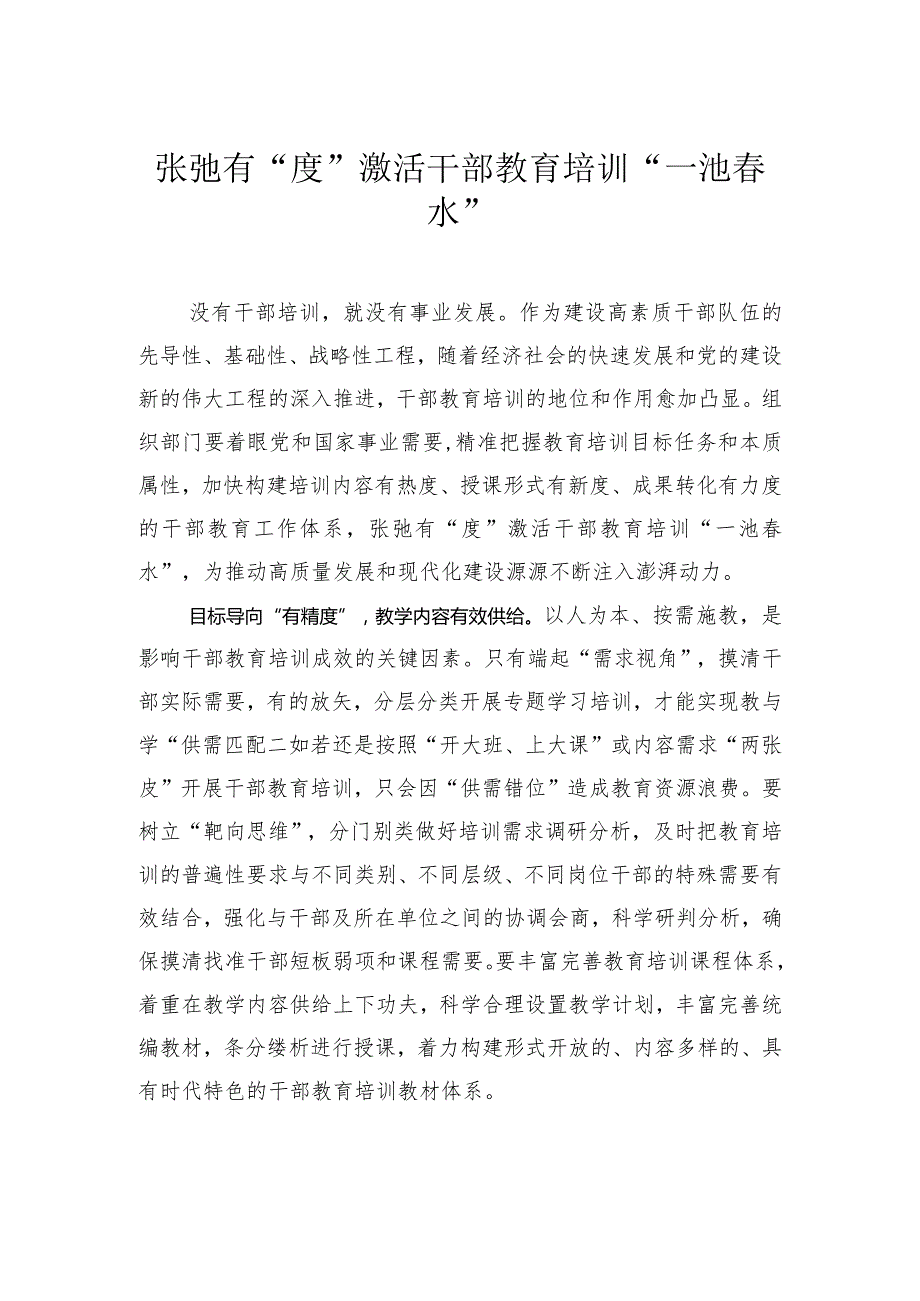 张弛有“度”激活干部教育培训“一池春
水”
没有干部培训，就没有事业发展。作为建设高素质干部队伍的
先导性、基础性、战略性工程，随着经济社会的快速发展和党的建设
新的伟大工程的深入推进，干部教育培训的地位和作用愈加凸显。组
织部门要着眼党和国家事业需要,精准把握教育培训目标任务和本质
属性，加快构建培训内容有热度、授课形式有新度、成果转化有力度
的干部教育工作体系，张弛有“度”激活干部教育培训“一池春
水”，为推动高质量发展和现代化建设源源不断注入澎湃动力。
目标导向“有精度”，教学内容有效供给。以人为本、按需施教，是
影响干部教育培训成效的关键因素。只有端起“需求视角”，摸清干
部实际需要，有的放矢，分层分类开展专题学习培训，才能实现教与
学“供需匹配二如若还是按照“开大班、上大课”或内容需求“两张
皮”开展干部教育培训，只会因“供需错位”造成教育资源浪费。要
树立“靶向思维”，分门别类做好培训需求调研分析，及时把教育培
训的普遍性要求与不同类别、不同层级、不同岗位干部的特殊需要有
效结合，强化与干部及所在单位之间的协调会商，科学研判分析，确
保摸清找准干部短板弱项和课程需要。要丰富完善教育培训课程体系，
着重在教学内容供给上下功夫，科学合理设置教学计划，丰富完善统
编教材，条分缕析进行授课，着力构建形式开放的、内容多样的、具
有时代特色的干部教育培训教材体系。